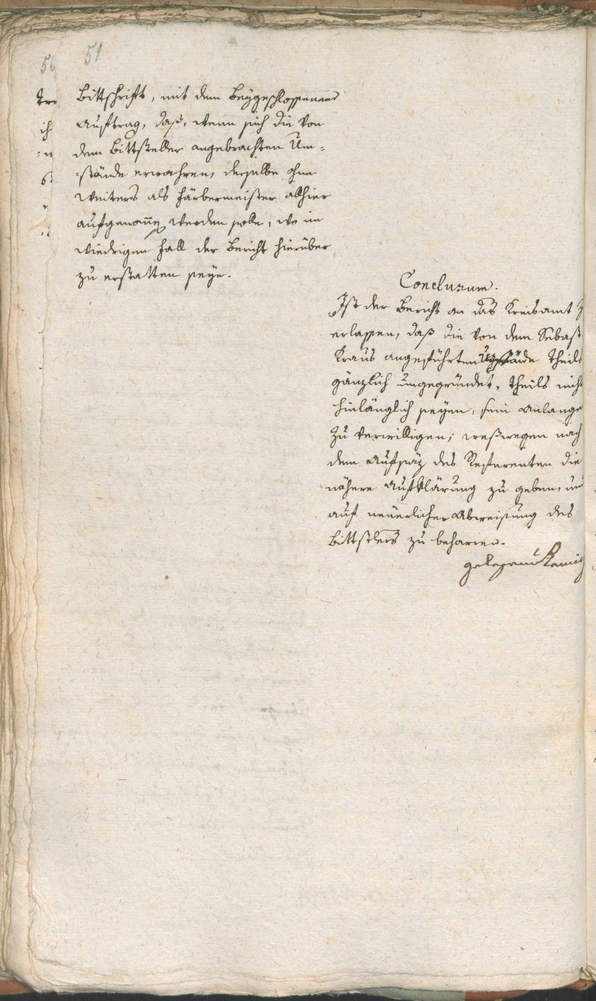 56 51
Bittschrift, mit dem beygeschlossenen
Auftrag, daß, wenn sich die von
dem Bittsteller angebrachten Um=
stände erwahren, derselbe ohne
weiters als Färbermeister allhier
aufgenommen werden solle, wo im
wiedrigen Fall der Bericht hierüber
zu erstatten seye.
Conclusum.
Ist der Bericht an das Kreisamt
erlassen, daß die von dem Sebast
Kraus angeführten Umstände theils
gänzlich ungegründet, theils nicht
hinlänglich seyen, sein Anlangen
zu verwilligen; weßwegen nach
dem Aufsatz des Referenten die
nähere Aufklärung zu geben, und
auf neuerlicher Abweisung des
Bittstellers zu beharren.